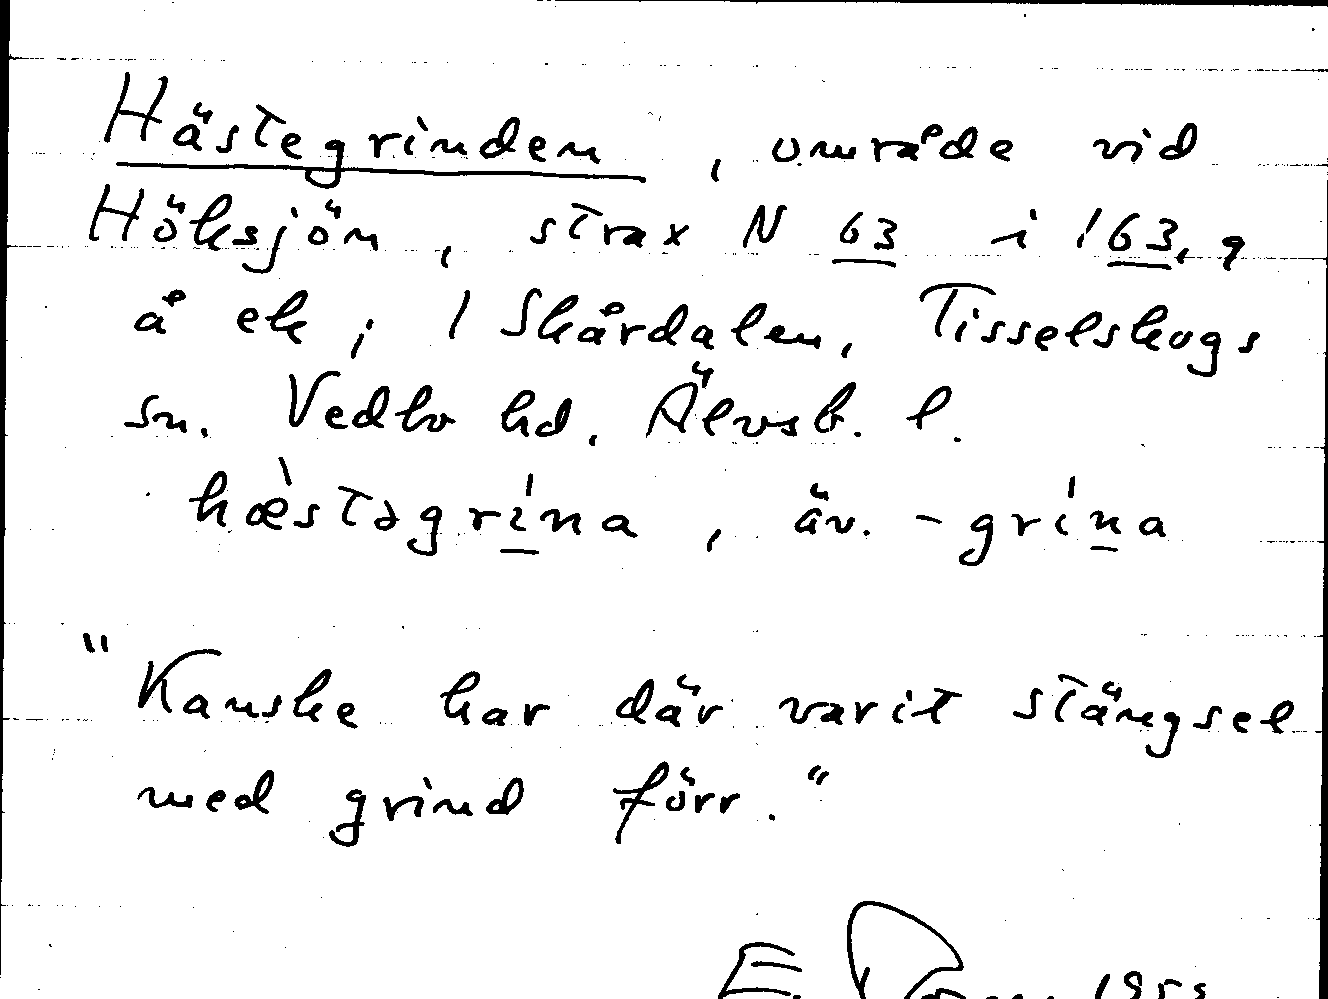 Hästegrinden, område vid
Höksjön, strax N 63 i 163,9
å ek; 1 Skårdalen, Tisselskogs
sn. Vedbo hd. Älvsb. l.
hæ̀stəgrína, äv. -grína
"Kanske har där varit stängsel
med grind förr."
E.